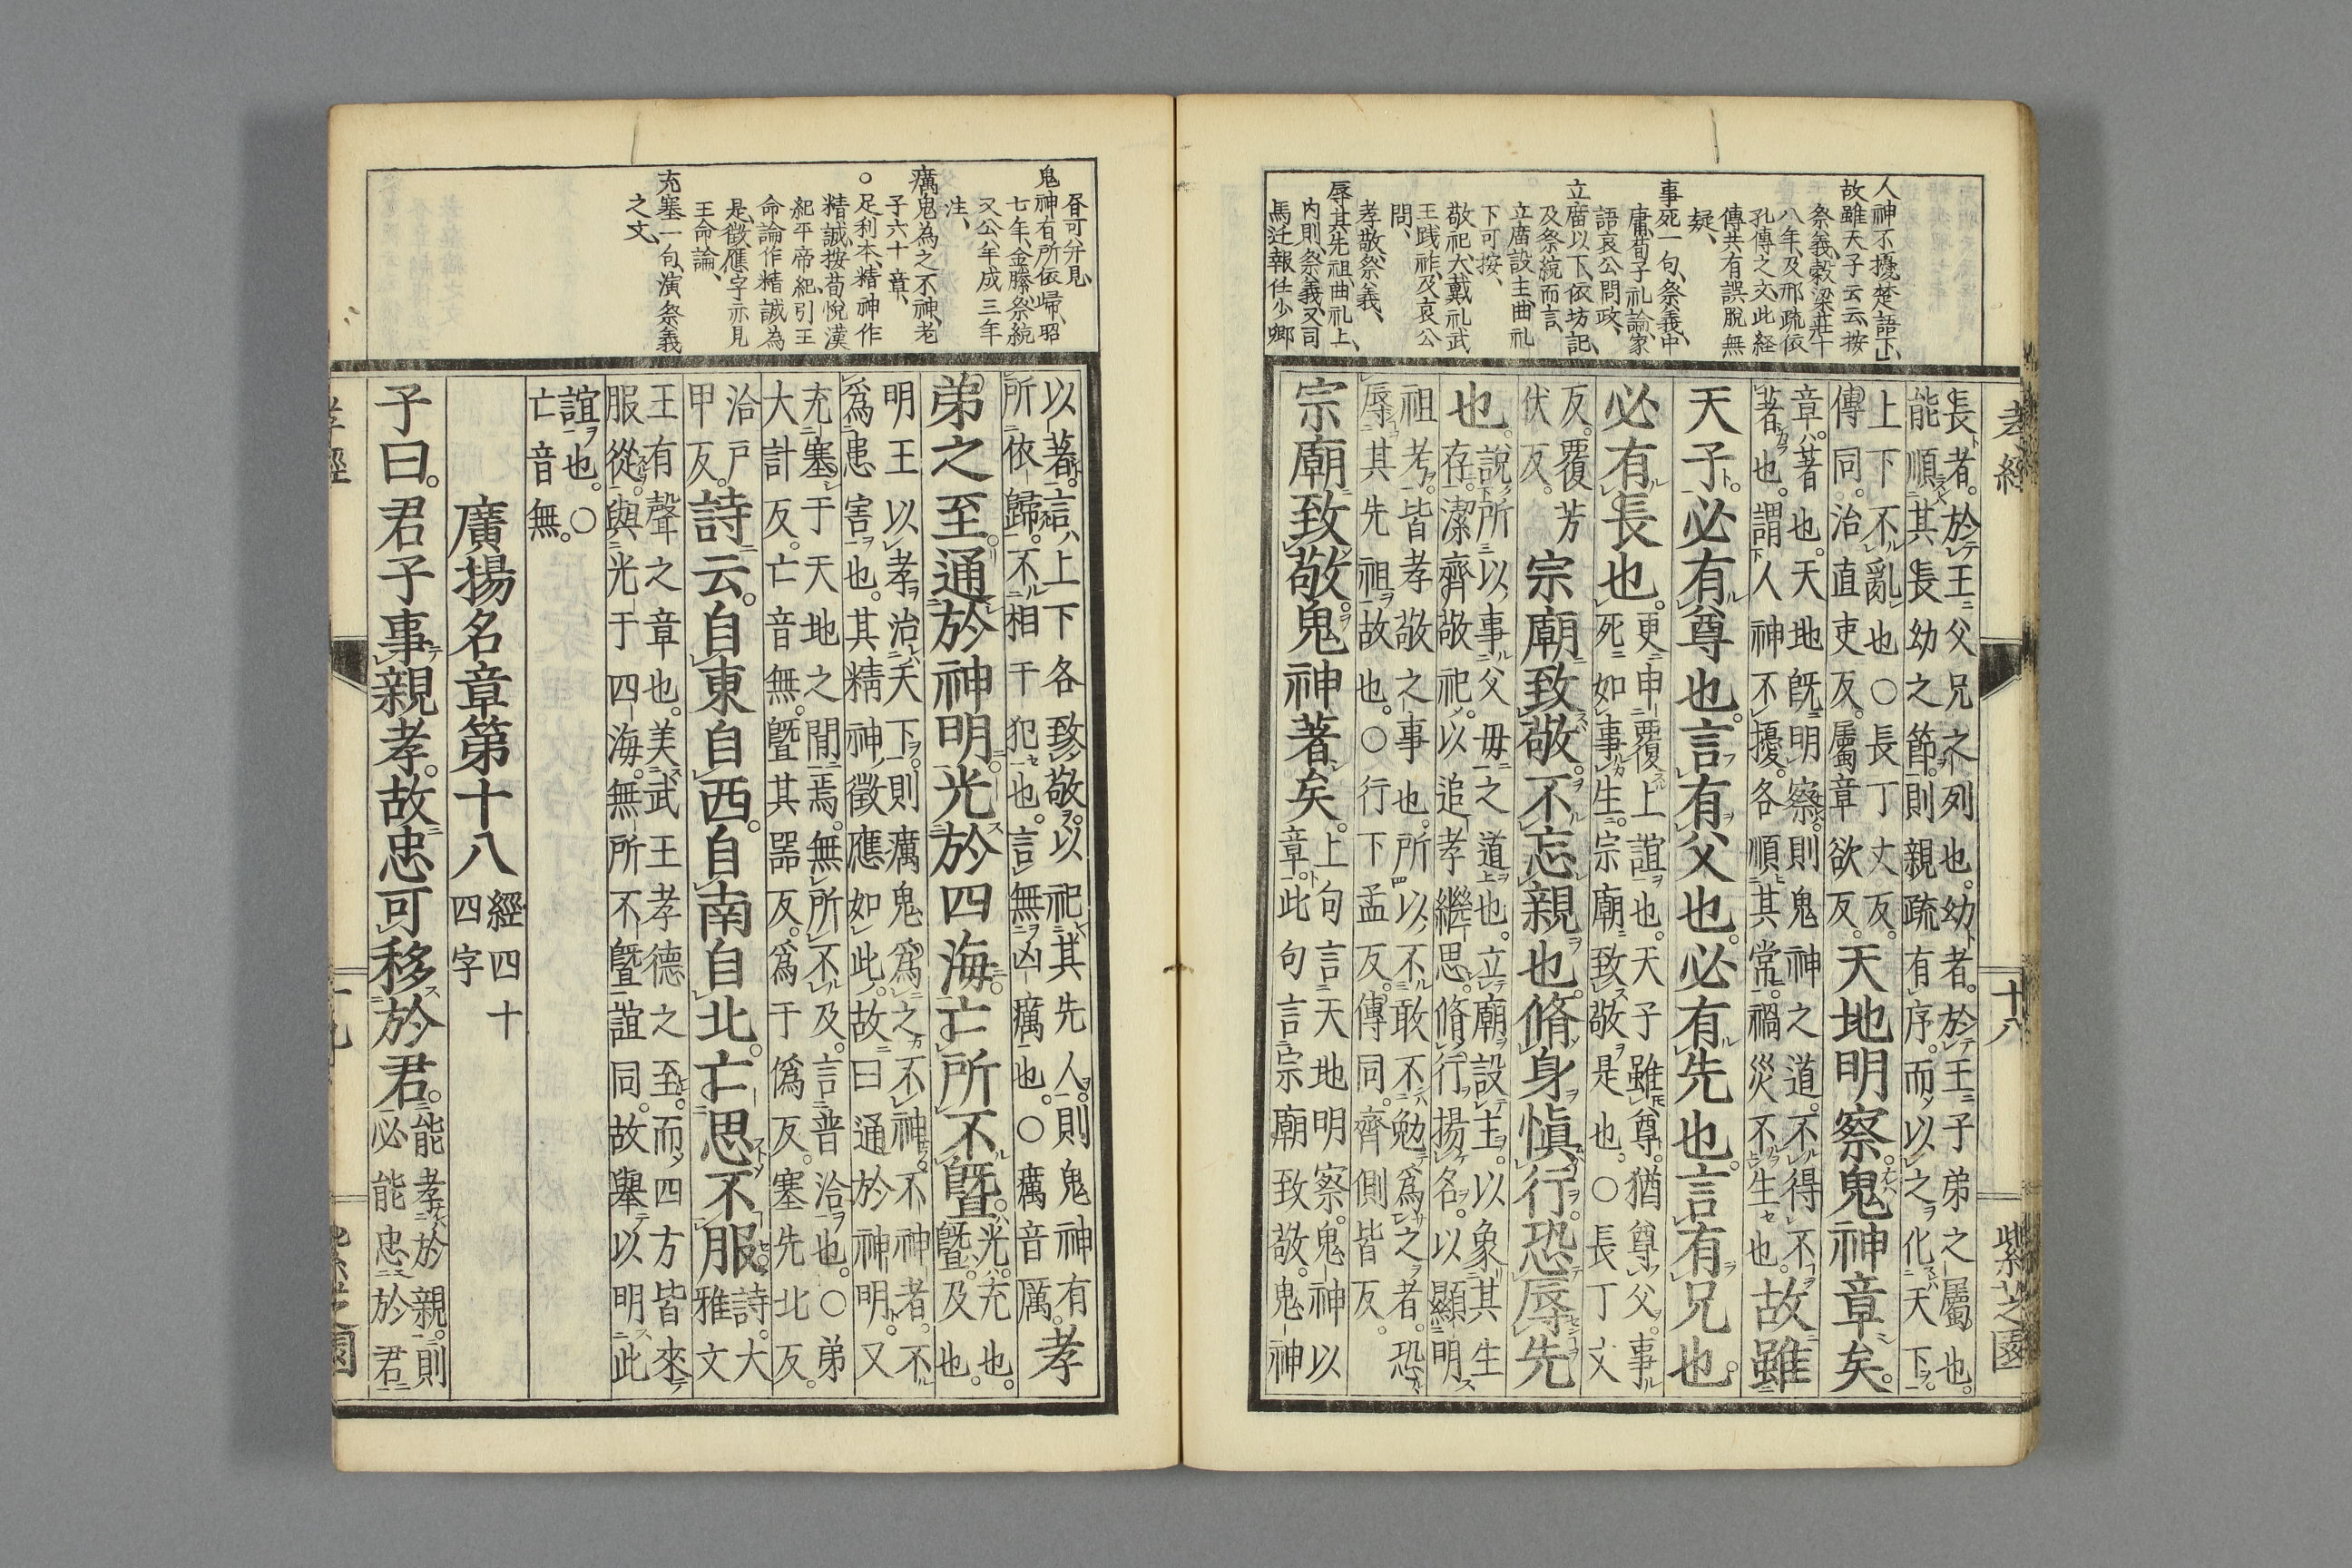 孝經
十八
紫芝園
人神不擾楚語下
故雖天子云云按
祭義穀梁莊十
八年及邢疏依
孔傳之文此經
傳共有誤脫無
疑
事死一句祭義中
庸荀子礼論家
語哀公問政
立廟以下依坊記
及祭統而言
立廟設主曲礼
下可按
敬祀大戴礼武
王践祚及哀公
問
孝敬祭義
辱其先祖曲礼上
内則祭義又司
馬迁報任少卿
長者於王父兄之列也幼者於王子弟之屬也
能順其長幼之節則親疏有序而以之化天下
上下不亂也○長丁丈反
傳同治直吏反屬章欲反
天地明察鬼神章矣
章著也天地既明察則鬼神之道不得不
著也謂人神不擾各順其常禍災不生也
故雖
天子必有尊也言有父也必有先也言有兄也
必有長也
更申覆上誼也天子雖尊猶尊父事
死如事生宗廟致敬是也○長丁丈
反覆芳
伏反
宗廟致敬不忘親也脩身愼行恐辱先
也
說所以事父毋之道也立廟設主以象其生
存潔齊敬祀以追孝繼思脩行揚名以顯明
祖考皆孝敬之事也所以不敢不勉爲之者恐
辱其先祖故也○行下孟反傳同齊側皆反
宗廟致敬鬼神著矣
上句言天地明察鬼神以
章此句言宗廟致敬鬼神
昏可并見
鬼神有所依歸昭
七年金縢祭統
又公八年成三年
注
癘鬼為之不神老
子六十章
○足利本精神作
精誠按荀悅漢
紀平帝紀引王
命論作精誠為
是徴應字亦見
王命論
充塞一句演祭義
之文
以著言上下各致敬以祀其先人則鬼神有
所依歸不相干犯也言無凶癘也○癘音厲
孝
弟之至通於神明光於四海亡所不曁
光充也
曁及也
明王以孝治天下則癘鬼爲之不神不神者不
爲患害也其精神徵應如此故曰通於神明又
充塞于天地之閒焉無所不及言普洽也○弟
大計反亡音無曁其器反爲于僞反塞先北反
洽戶
甲反
詩云自東自西自南自北亡思不服
詩大
雅文
王有聲之章也美武王孝德之至而四方皆來
服從與光于四海無所不曁誼同故舉以明此
誼也○
亡音無
廣揚名章第十八
經四十
四字
子曰君子事親孝故忠可移於君
能孝於親則
必能忠於君